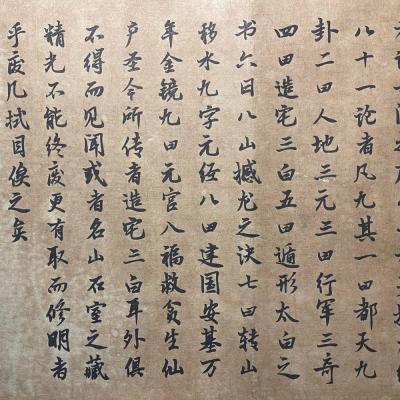 八十一论者凡九其一曰都天九
卦二曰人地三元三曰行军三奇
四曰造宅三白五曰遁形太白之
书六曰八山撼龙之诀七曰转山
移水九字元经八曰建国安基万
年金镜九曰元宫八福救贫生仙
产圣今所传者造宅三白耳外俱
不得而见闻或者名山石室之藏
精光不能终废更有取而修明者
乎庶几拭目俟之矣